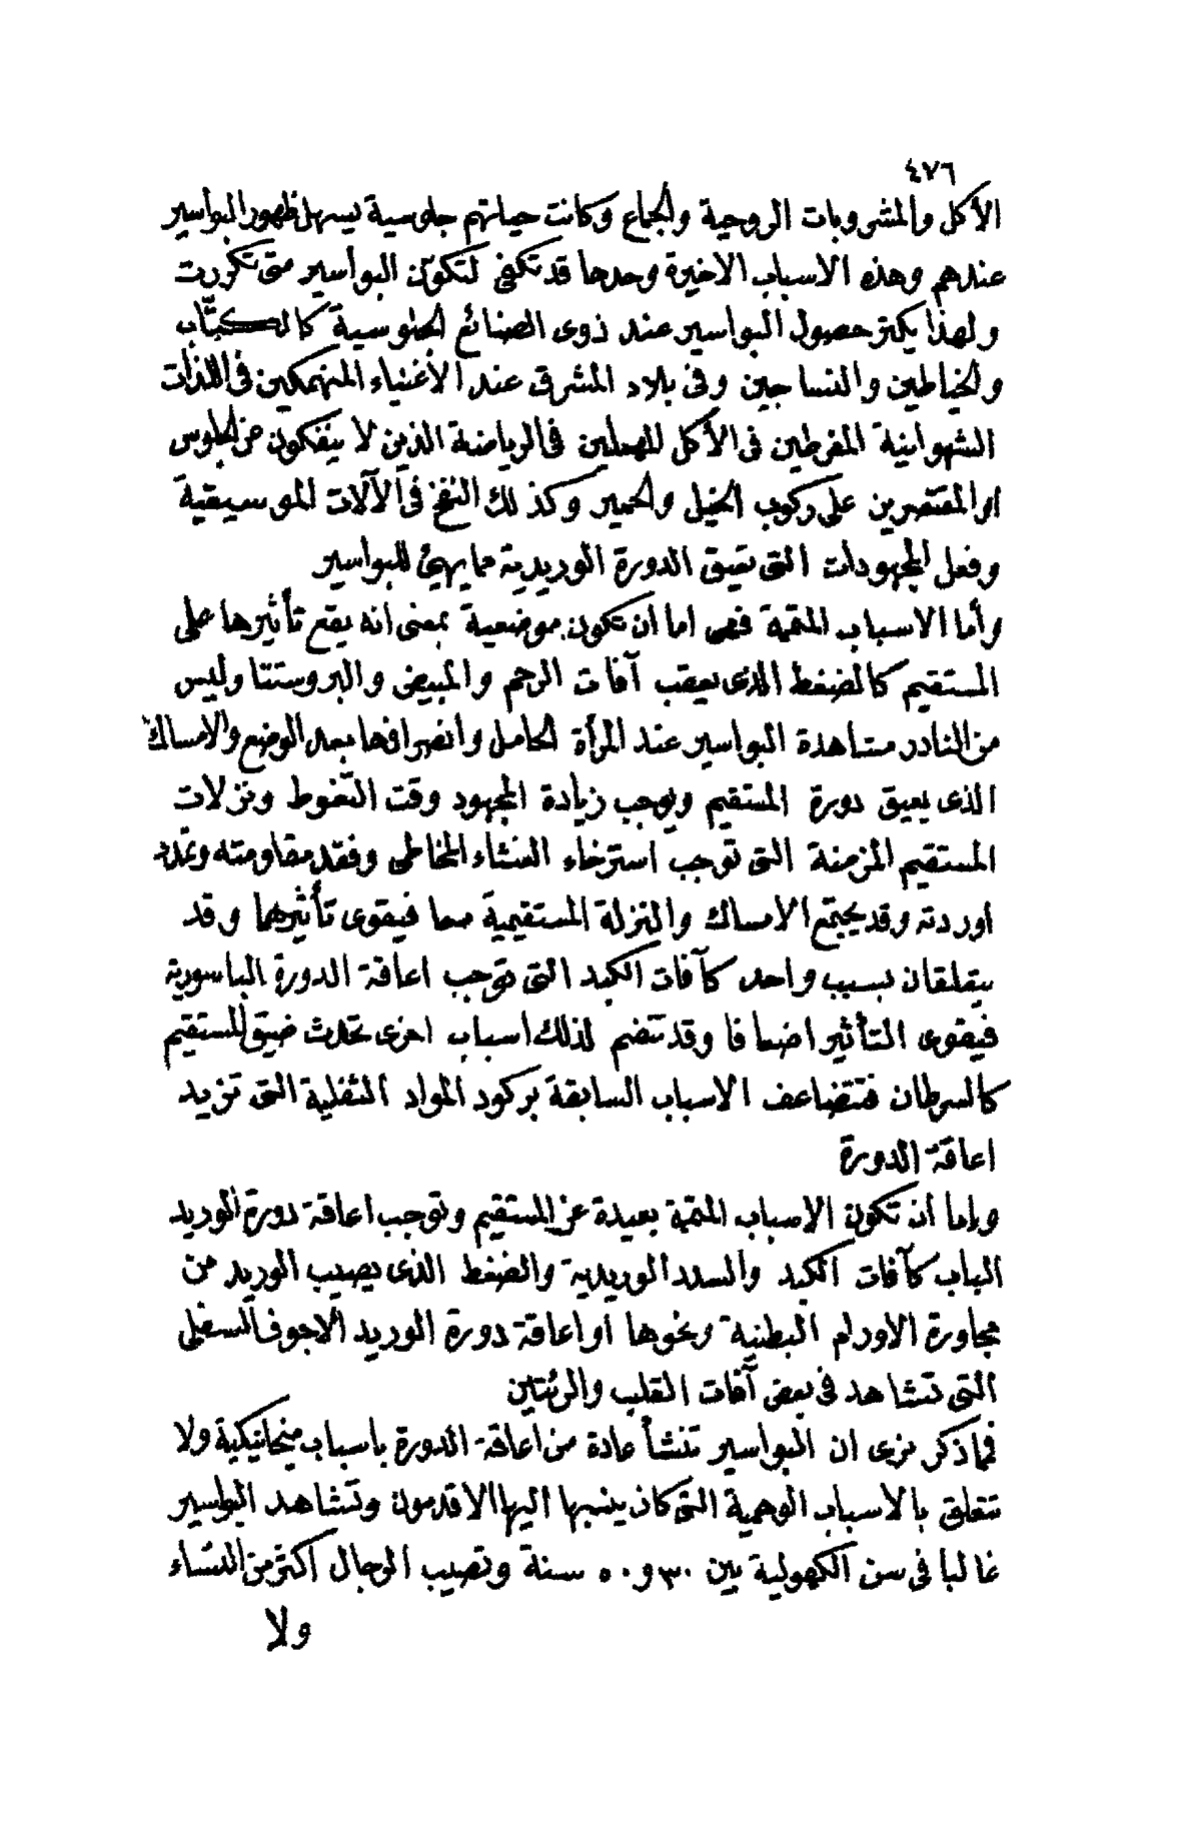 ٤٧٦
الأكل والمشروبات الروحية والجماع وكانت حياتهم جلوسية يسهل ظهور البواسير
عندهم وهذه الاسباب الاخيرة وحدها قد تكفي لتكوّن البواسير متى تكررت
ولهذا يكثر حصول البواسير عند ذوى الصنائع الجلوسية كالكتّاب
والخياطين والنساجين وفى بلاد المشرق عند الأغنياء المنهمكين فى اللذات
الشهوانية المفرطين فى الأكل المهملين فى الرياضة الذين لا ينفكون عن الجلوس
او المقتصرين على ركوب الخيل والحمير وكذلك النفخ فى الآلات الموسيقية
وفعل المجهودات التى تعيق الدورة الوريدية مما يهيئ للبواسير
وأما الاسباب المتممة فهى اما ان تكون موضعية بمعنى انه يقع تأثيرها على
المستقيم كالضغط الذى يعقب آفات الرحم والمبيض والبروستتا وليس
من النادر مشاهدة البواسير عند المرأة الحامل وانصرافها بعد الوضع والامساك
الذى يعيق دورة المستقيم ويوجب زيادة المجهود وقت التغوط ونزلات
المستقيم المزمنة التى توجب استرخاء الغشاء المخاطى وفقد مقاومته وتمدد
اوردته وقد يجتمع الامساك والنزلة المستقيمية معا فيقوى تأثيرهما وقد
يتعلقان بسبب واحد كآفات الكبد التى توجب اعاقة الدورة الباسورية
فيقوى التأثير اضعافا وقد تنضم لذلك اسباب اخرى تحدث ضيق المستقيم
كالسرطان فتتضاعف الاسباب السابقة بركود المواد الثفلية التى تزيد
اعاقة الدورة
واما أن تكون الاسباب المتممة بعيدة عن المستقيم وتوجب اعاقة دورة الوريد
الباب كآفات الكبد والسدد الوريدية والضغط الذى يصيب الوريد من
مجاورة الاورام البطنية ونحوها او اعاقة دورة الوريد الاجوف السفلى
التى تشاهد فى بعض آفات القلب والرئتين
فمما ذكر نرى ان البواسير تنشأ عادة من اعاقة الدورة باسباب ميخانيكية ولا
تتعلق بالاسباب الوهمية التى كان ينسبها اليها الاقدمون وتشاهد البواسير
غالبا فى سن الكهولية بين ٣٠ و٥٠ سنة وتصيب الرجال اكثر من النساء
ولا